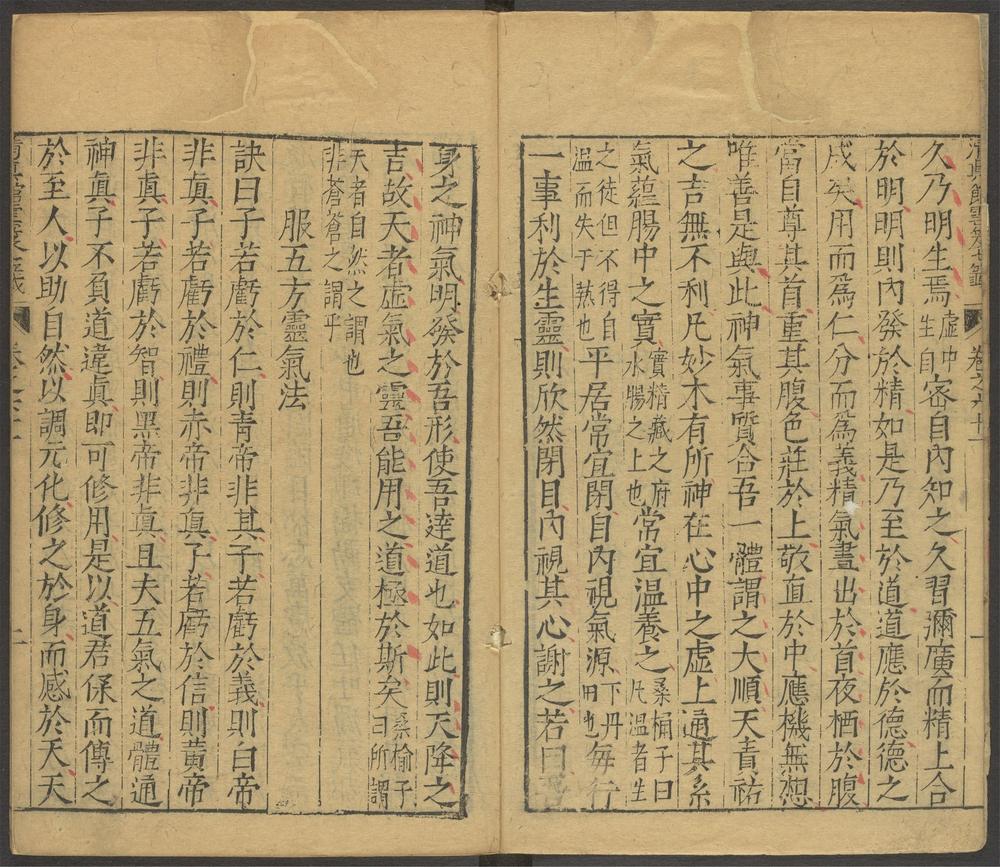 久乃明生焉虛中生自客自內知之久習彌廣而精上合
於明明則內發於精如是乃至於道道應於德德之
成矣用而爲仁分而爲義精氣晝出於首夜栖於腹
當自尊其首重其腹色莊於上敬直於中應機無愆
唯善是與此神氣事質合吾一體謂之大順天青祐
之吉無不利凡妙木有所神在心中之虛上通其系
氣蘊腸中之實實精藏之府水腸之上也常宜溫養之桑榆子曰凡溫者生
之徒但不得自溫而失于熱也平居常宜閉自內視氣源下丹田也每行
一事利於生靈則欣然閉目內視其心謝之若曰
身之神氣明發於吾形使吾達道也如此則天降之
吉故天者虛氣之靈吾能用之道極於斯矣桑榆子曰所謂
天者自然之謂也非蒼蒼之謂乎
服五方靈氣法
訣曰子若虧於仁則青帝非其子若虧於義則白帝
非真子若虧於禮則赤帝非真子若虧於信則黃帝
非真子若虧於智則黑帝非真且夫五氣之道體通
神真子不負道違真即可修用是以道君保而傳之
於至人以助自然以調元化修之於身而感於天天